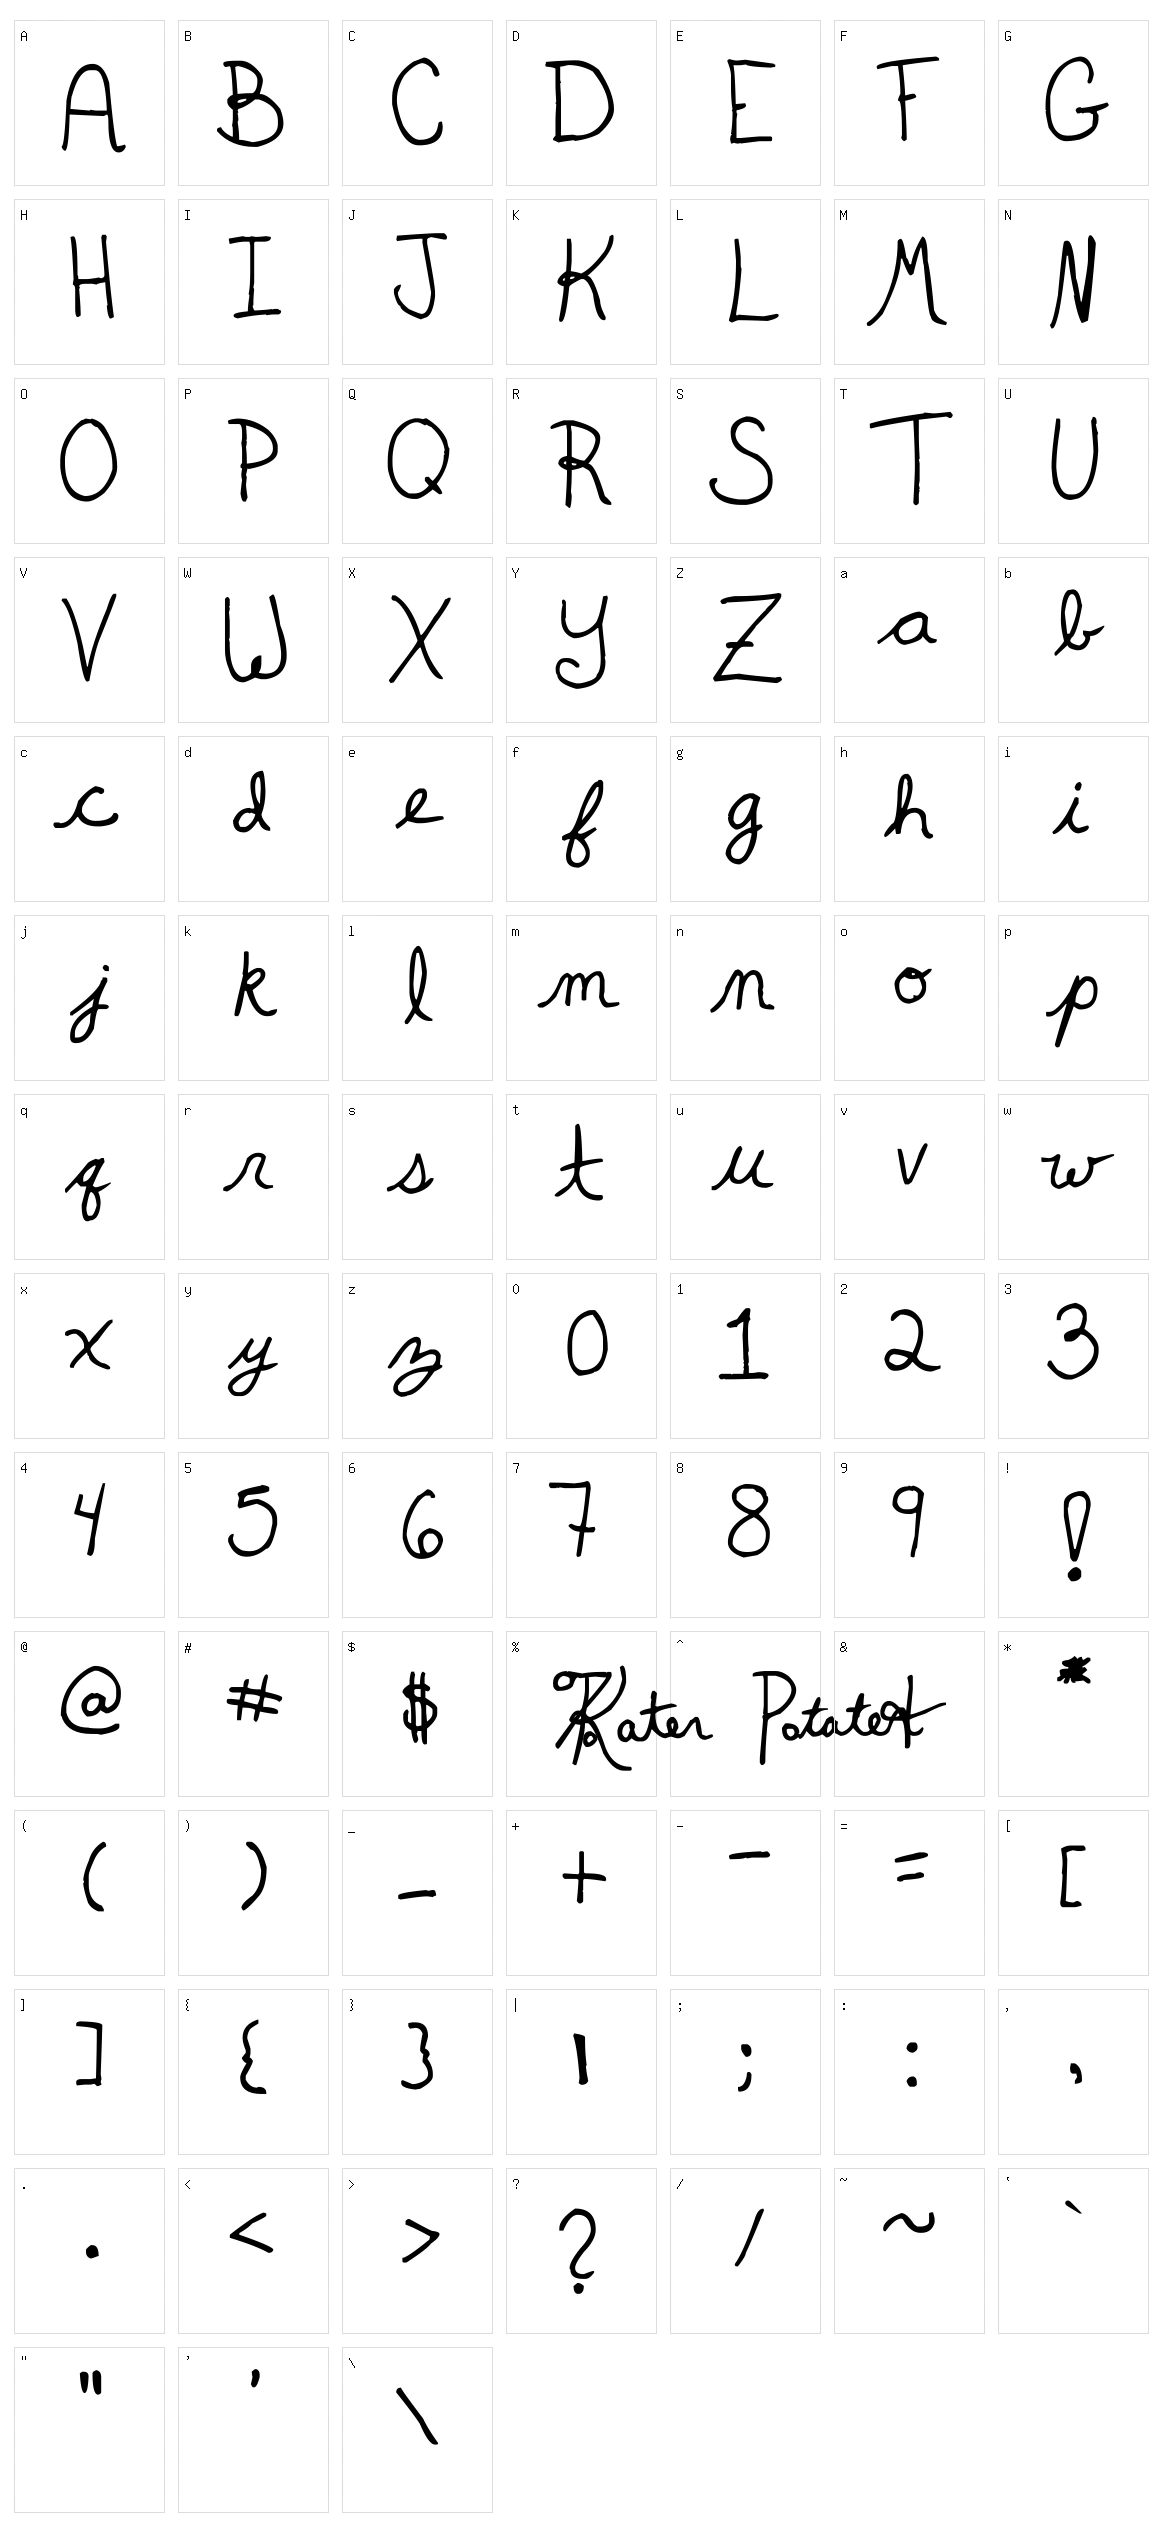 A B C D E F G
A B C D E F G
H I J K L M N
H I J K L M N
O P Q R S T U
O P Q R S T U
V W X Y Z a b
V W X Y Z a b
c d e f g h i
c d e f g h i
j k l m n o p
j k l m n o p
q r s t u v w
q r s t u v w
x y z 0 1 2 3
x y z 0 1 2 3
4 5 6 7 8 9 !
4 5 6 7 8 9 !
@ # $ % ^ & *
@ # $ Kater Potatert *
( ) _ + - = [
( ) _ + - = [
] { } | ; : ,
] { } | ; : ,
. < > ? / ~ `
. < > ? / ~ `
" ' \
" ' \